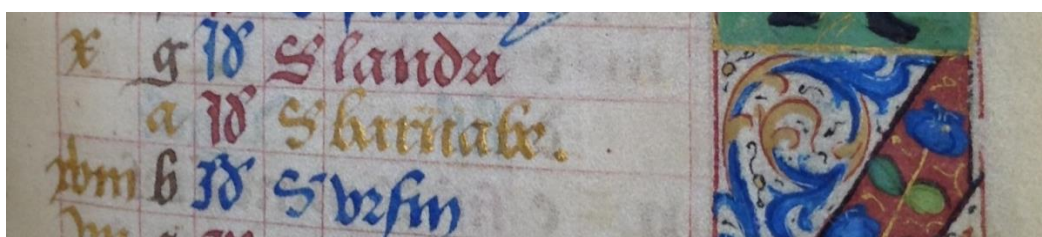 x g Id S landri
a Id S barnabe.
xviii b Id S vrsin